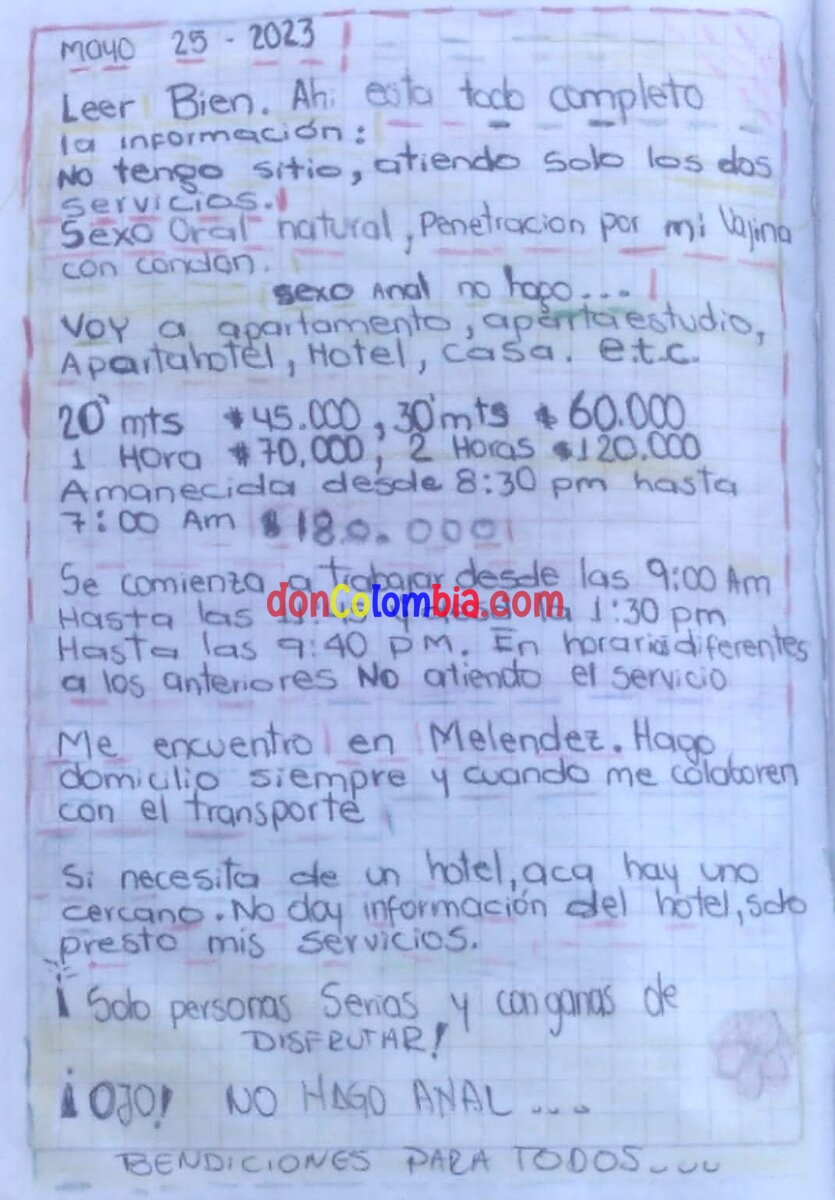 Mayo 25 - 2023
Leer Bien. Ahi esta todo completo
la información:
No tengo sitio, atiendo solo los dos
servicios.
Sexo Oral natural, Penetracion por mi Vajina
con condon.
sexo Anal no hago....
Voy a apartamento, apartaestudio,
Apartahotel, Hotel, casa. e.t.c.
20' mts $45.000, 30' mts $60.000
1 Hora $70,000, 2 Horas $120.000
Amanecida desde 8:30 pm hasta
7:00 Am $180.000
Se comienza a trabajar desde las 9:00 Am
donColombia.com
Hasta las la 1:30 pm
Hasta las 9:40 PM. En horarios diferentes
a los anteriores No atiendo el servicio
Me encuentro en Melendez. Hago
domicilio siempre y cuando me colaboren
con el transporte
Si necesita de un hotel, aca hay uno
cercano. No doy información del hotel, solo
presto mis servicios.
¡Solo personas Serias y con ganas de
DISFRUTAR!
¡OJO! NO HAGO ANAL....
BENDICIONES PARA TODOS....